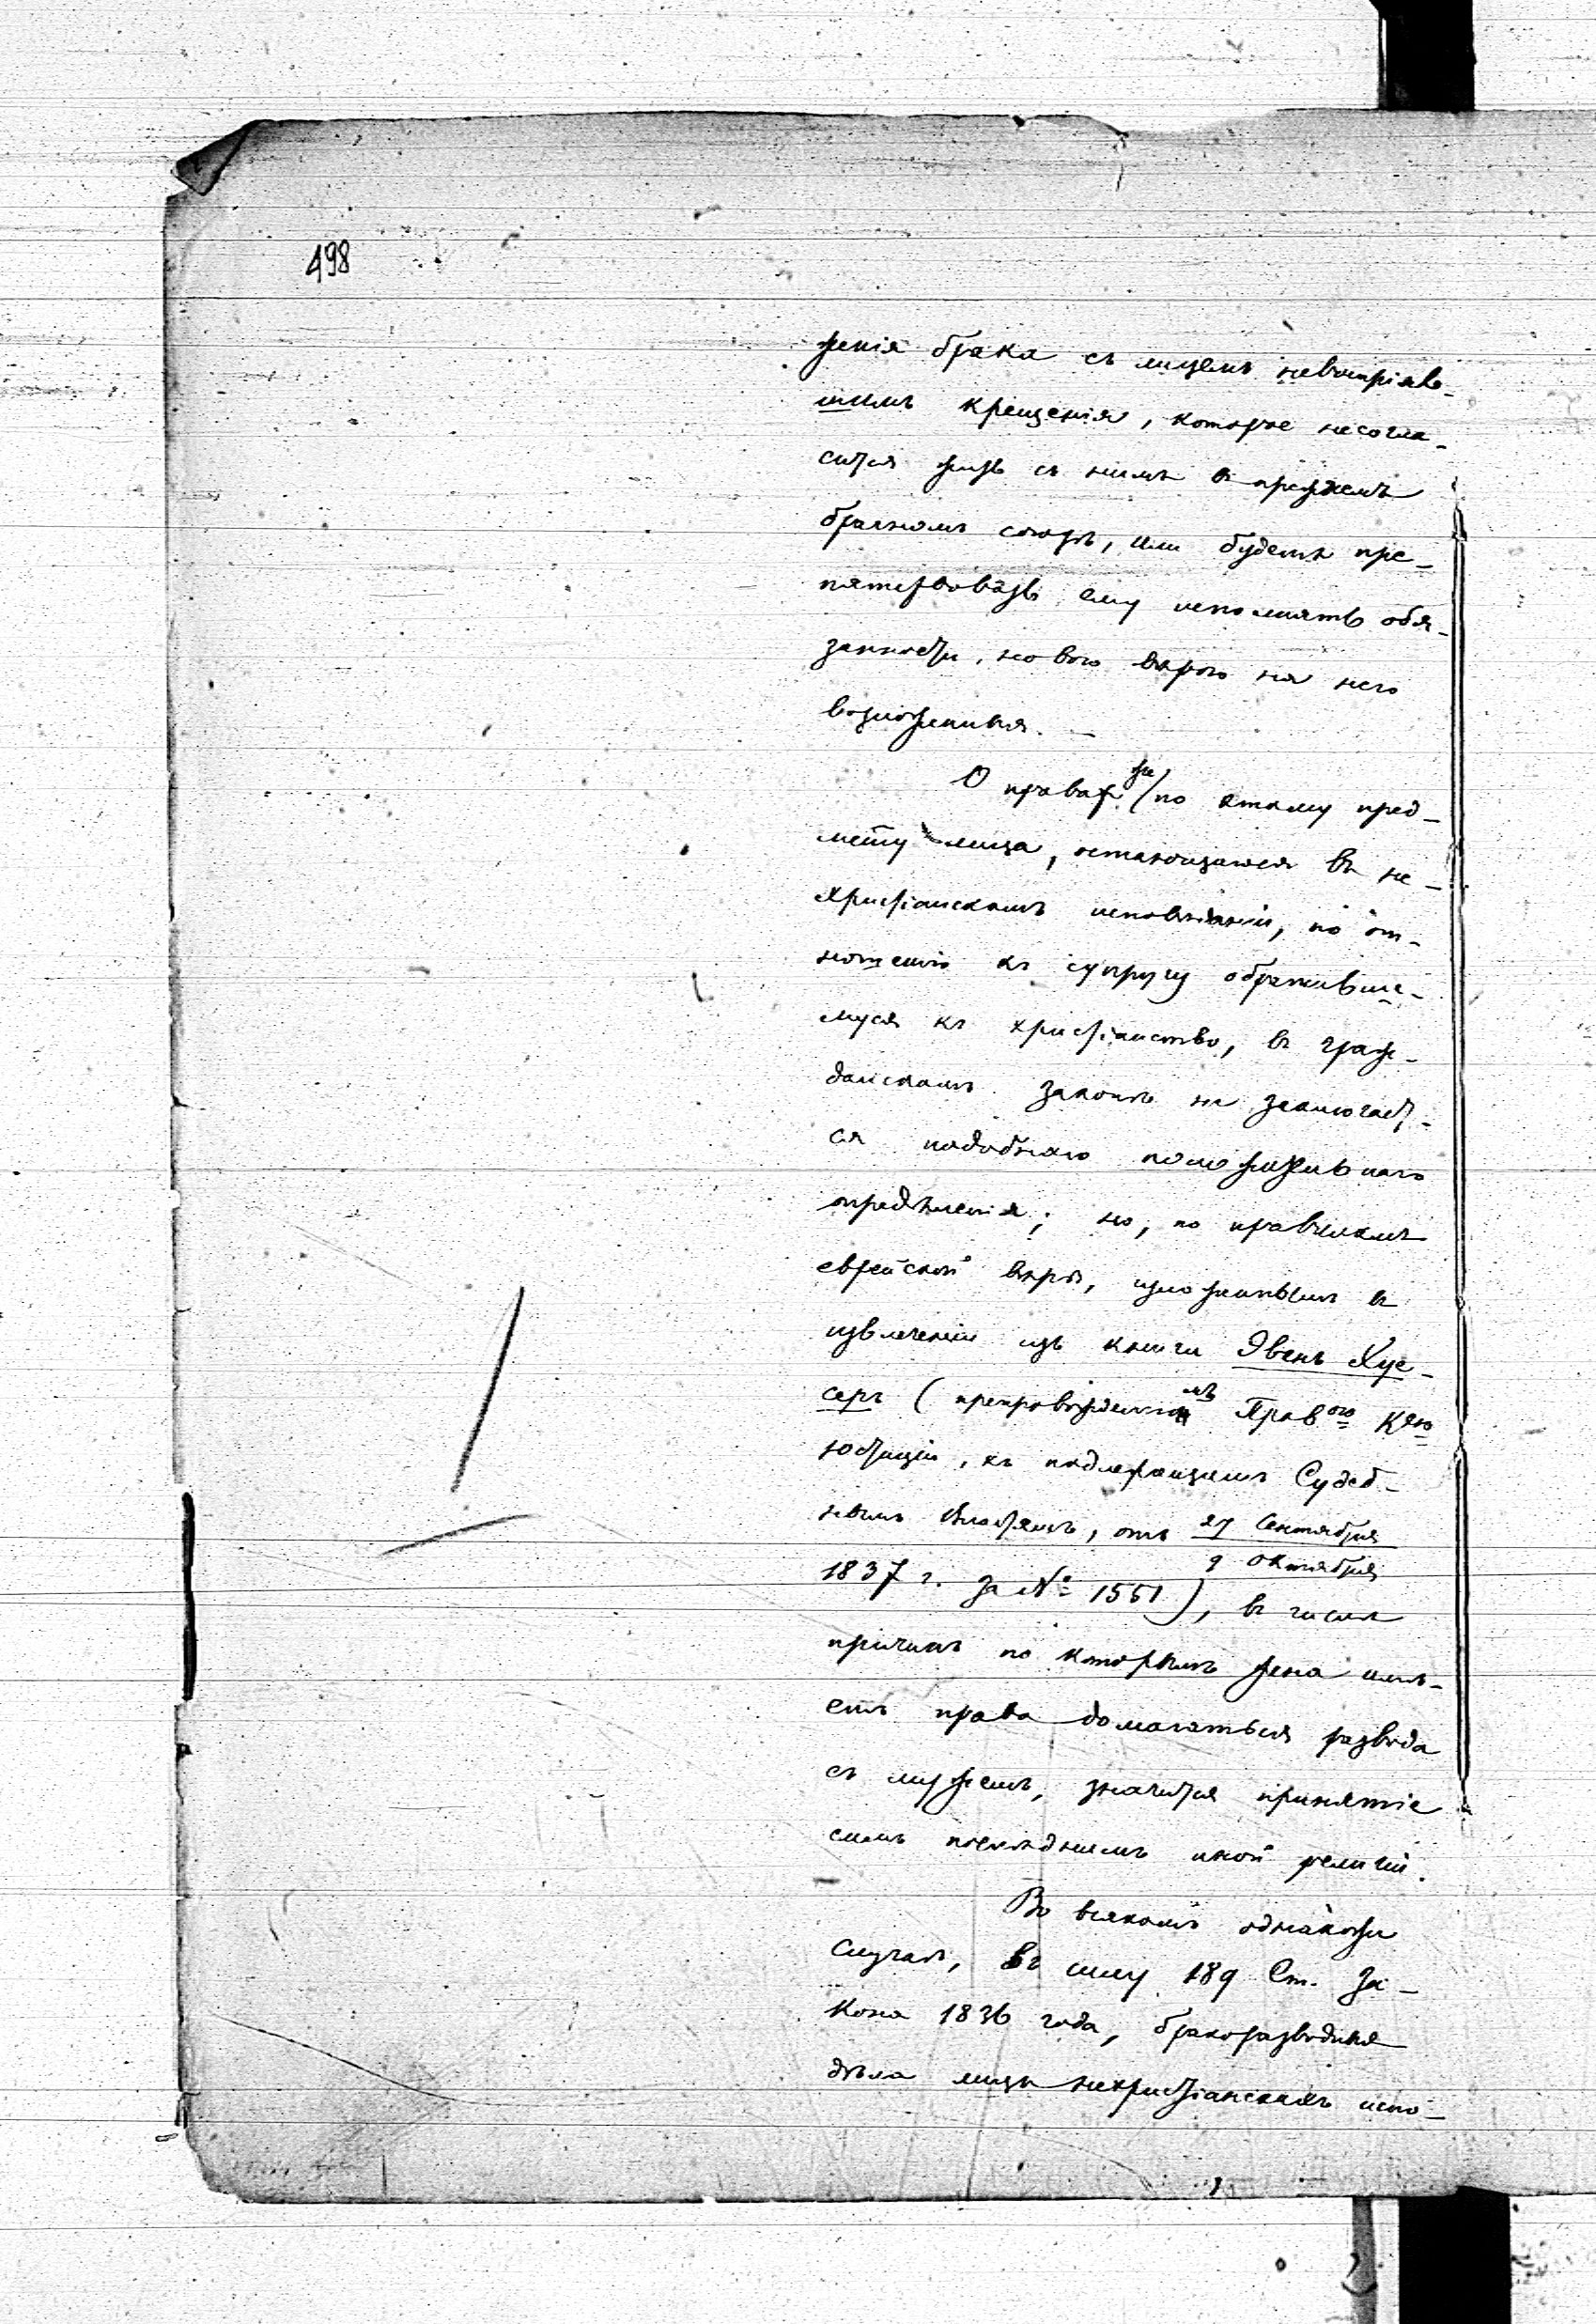 498
женія брака съ лицемъ невоспріяв-
шимъ крещенія, которое несогла-
сится жить съ нимъ въ прежнемъ
брачномъ союзѣ, или будетъ пре-
пятствовать ему исполнять обя-
занности, новою вѣрою на него
возложенныя. —
О правахъ же по этому пред-
мету лица, остающагося въ не-
христіанскомъ исповѣданіи, по от-
ношенію къ супругу обративше-
муся къ христіанству, въ граж-
данскомъ законѣ не заключает-
ся подобнаго положительнаго
опредѣленія; но, по правиламъ
еврейской вѣры, изложеннымъ въ
извлеченіи изъ книги Эвенъ Хуе-
серъ (препровожденномъ Правою Кою
юстиціи, къ подлежащимъ Судеб-
нымъ Властямъ, отъ 27 Сентября
9 Октября
1837 г. за № 1551), въ числѣ
причинъ по которымъ жена имѣ-
етъ право домогаться развода
съ мужемъ, значится принятіе
симъ послѣднимъ иной религіи.
Во всякомъ однакоже
случаѣ, въ силу 189 Ст. За-
кона 1836 года, бракоразводныя
дѣла лицъ нехристіанскихъ испо-